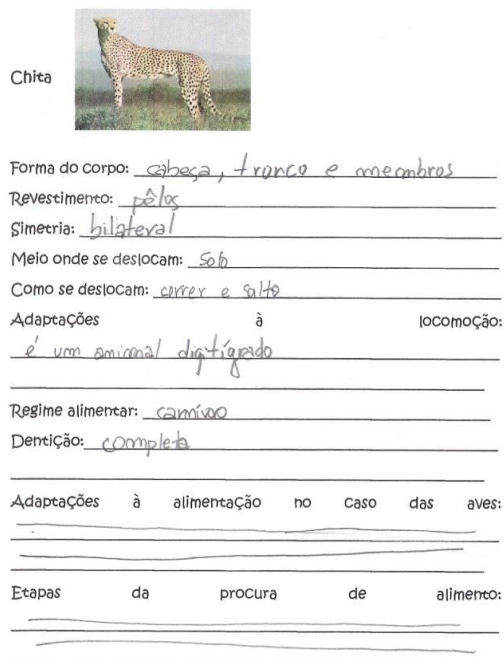 Chita
Forma do corpo: cabeça, tronco e membros
Revestimento: pêlos
Simetria: bilateral
Meio onde se deslocam: Solo
Como se deslocam: correr e salto
Adaptações à locomoção:
é um animal digitígrado
Regime alimentar: carnívoro
Dentição: completa
Adaptações à alimentação no caso das aves:
Etapas da procura de alimento: